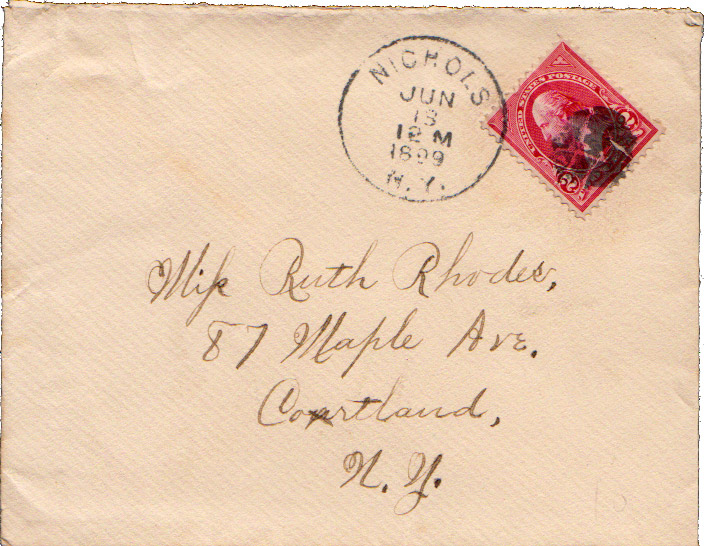 NICHOLS
JUN
13
12 M
1899
N.Y.
UNITED STATES POSTAGE
2 2
Miss Ruth Rhodes,
87 Maple Ave.
Cortland,
N.Y.